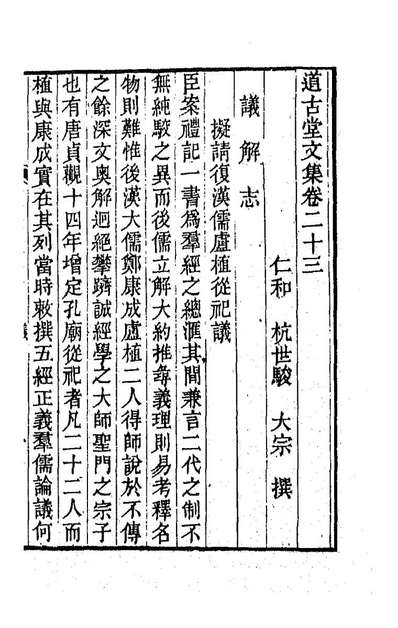 道古堂文集卷二十三
仁和 杭世駿 大宗 撰
議 解 志
擬請復漢儒盧植從祀議
臣案禮記一書為羣經之總滙其間兼言二代之制不
無純駁之異而後儒立解大約推尋義理則易考釋名
物則難惟後漢大儒鄭康成盧植二人得師說於不傳
之餘深文奧解迥絕攀躋誠經學之大師聖門之宗子
也有唐貞觀十四年增定孔廟從祀者凡二十二人而
植與康成實在其列當時敕撰五經正義羣儒論議何